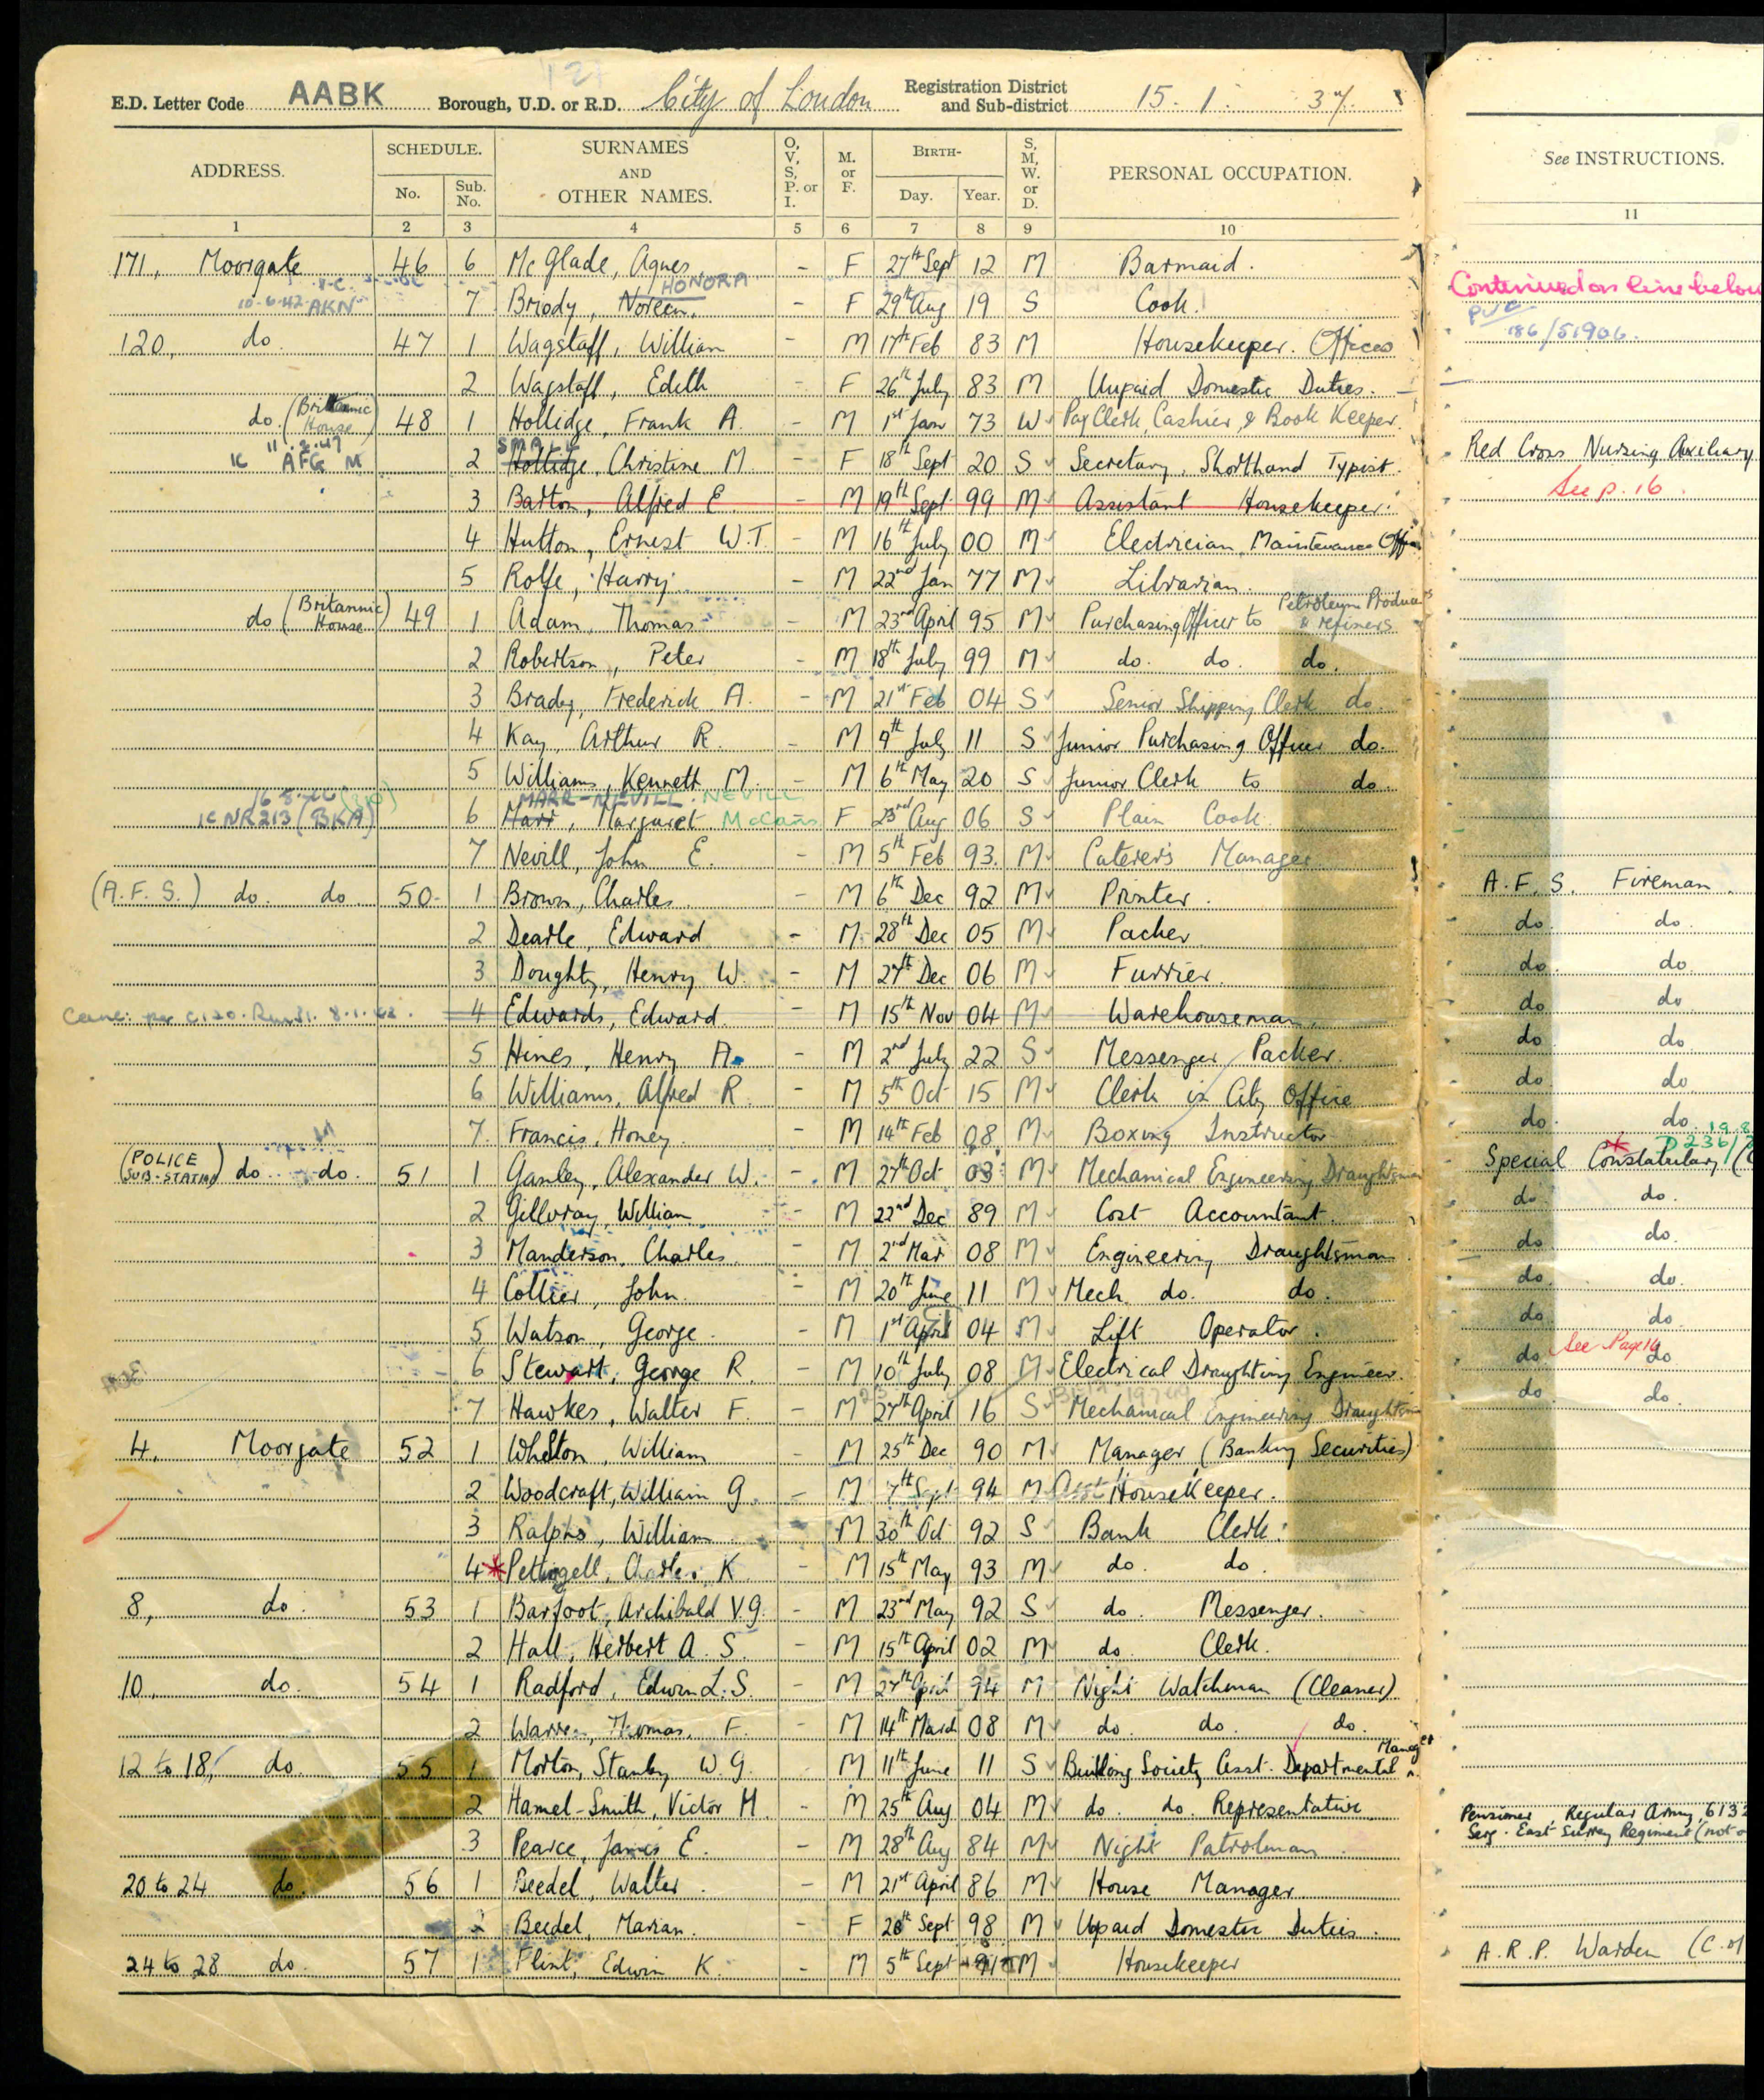 E.D. Letter Code AABK Borough, U.D. or R.D. City of London Registration District and Sub-district 15 . 1 . 37.
ADDRESS. SCHEDULE. SURNAMES AND OTHER NAMES. O, V, S, P. or I. M. or F. BIRTH- S, M, W. or D. PERSONAL OCCUPATION. See INSTRUCTIONS.
No. Sub. No. Day. Year.
1 2 3 4 5 6 7 8 9 10 11
171, Moorgate 46 6 McGlade, Agnes - F 27th Sept 12 M Barmaid.
Continued on line below
HONORA
10.6.42 AKN 7 Briody, Noreen. - F 29th Aug 19 S Cook.
186/51906.
120, do. 47 1 Wagstaff, William - M 17th Feb 83 M Housekeeper. Offices
2 Wagstaff, Edith - F 26th July 83 M Unpaid Domestic Duties.
do (Britannic House) 48 1 Hollidge, Frank A. - M 1st Jan 73 W Pay Clerk, Cashier, & Book Keeper.
11.2.47 AFG M 2 Hollidge, Christine M. - F 18th Sept 20 S Secretary, Shorthand Typist. Red Cross Nursing Auxiliary
3 Barton, Alfred E. - M 19th Sept 99 M Assistant Housekeeper. See p. 16.
4 Hutton, Ernest W.T. - M 16th July 00 M Electrician, Maintenance
5 Rolfe, Harry. - M 22nd Jan 77 M Librarian.
do (Britannic House) 49 1 Adam, Thomas - M 23rd April 95 M Purchasing Officer to Petroleum Producers & refiners
2 Robertson, Peter - M 18th July 99 M do. do. do.
3 Brady, Frederick A. - M 21st Feb 04 S Senior Shipping Clerk do.
4 Kay, Arthur R. - M 9th July 11 S Junior Purchasing Officer do.
5 Williams, Kenneth M. - M 6th May 20 S Junior Clerk to do.
MARR-NEVILL. NEVILL
NR213 (BKA) 6 Marr, Margaret McCanns F 23rd Aug 06 S Plain Cook
7 Nevill, John E. - M 5th Feb 93. M Caterer's Manager
(A.F.S.) do. do. 50 1 Brown, Charles. - M 6th Dec 92 M Printer. A.F.S. Fireman.
2 Dearle, Edward - M 28th Dec 05 M Packer do. do.
3 Doughty, Henry W. - M 27th Dec 06 M Furrier. do. do.
Canc. per C120. 8.1.42. 4 Edwards, Edward. - M 15th Nov 04 M Warehouseman. do do
5 Hines, Henry A. - M 2nd July 22 S Messenger / Packer. do. do.
6 Williams, Alfred R. - M 5th Oct 15 M Clerk in City Office do do.
7. Francis, Honey. - M 14th Feb 08 M Boxing Instructor do. do.
(POLICE SUB-STATION) do. do. 51 1 Ganley, Alexander W. - M 27th Oct 03 M Mechanical Engineering Draughtsman Special Constabulary
2 Gillvray, William - M 22nd Dec 89 M Cost Accountant. do. do.
3 Manderson, Charles. - M 2nd Mar 08 M Engineering Draughtsman do. do.
4 Collier, John. - M 20th June 11 M Mech. do. do. do. do.
5 Watson, George. - M 1st April 04 M Lift Operator. do do.
6 Stewart, George R. - M 10th July 08 M Electrical Draughting Engineer. do See Page 16 do
7 Hawkes, Walter F. - M 27th April 16 S Mechanical Engineering Draughtsman do. do.
4, Moorgate 52 1 Whelton, William - M 25th Dec 90 M Manager (Banking Securities)
2 Woodcraft, William G. - M 7th Sept 94 M Asst Housekeeper.
3 Ralphs, William - M 30th Oct 92 S Bank Clerk.
4 * Pettingell, Charles K - M 15th May 93 M do. do.
8, do. 53 1 Barfoot, Archibald V.G. - M 23rd May 92 S do. Messenger.
2 Hall, Herbert A. S. - M 15th April 02 M do. Clerk.
10, do. 54 1 Radford, Edwin L.S. - M 27th April 94 M Night Watchman (Cleaner).
2 Warren, Thomas, F. - M 14th March 08 M do. do. do.
12 to 18, do. 55 1 Morton, Stanley W.G. M 11th June 11 S Building Society Asst. Departmental Manager
2 Hamel-Smith, Victor M. - M 25th Aug 04 M do. do. Representative Pensioner, Regular Army, 6132
Serg. East Surrey Regiment (not
3 Pearce, James E. - M 28th Aug 84 M Night Patrolman.
20 to 24 do. 56 1 Beedel, Walter. - M 21st April 86 M House Manager
2 Beedel, Marian. - F 28th Sept 98 M Unpaid Domestic Duties.
24 to 28 do. 57 1 Flint, Edwin K. - M 5th Sept 91 M Housekeeper A.R.P. Warden (C. of